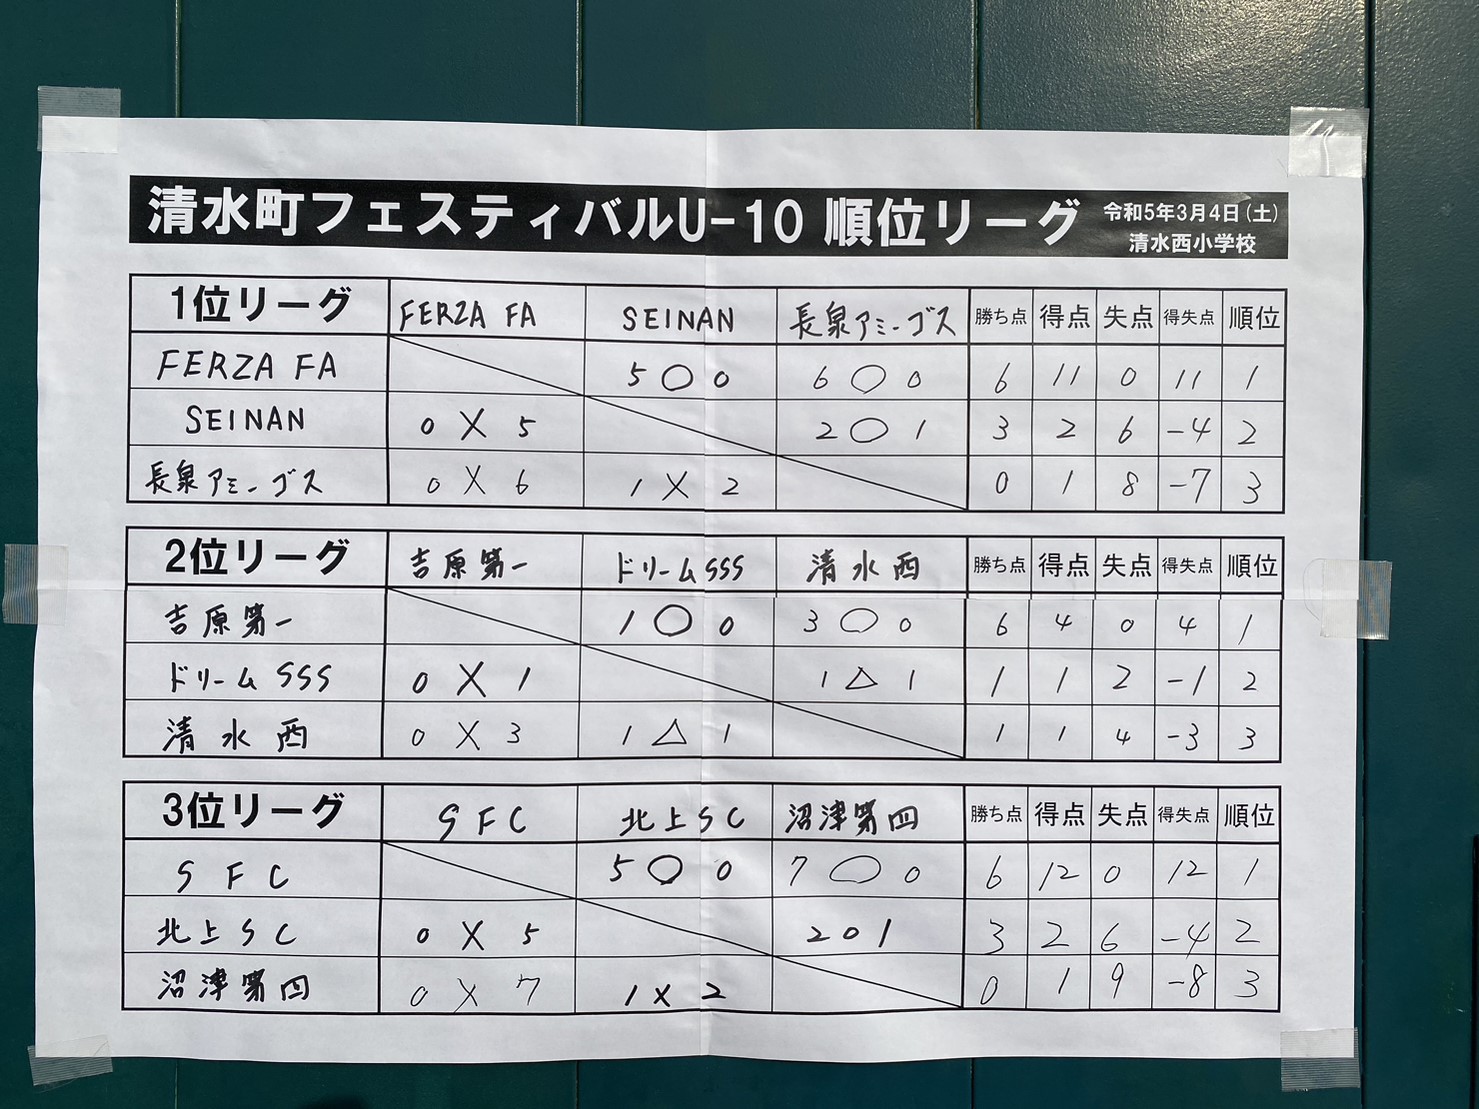 清水町フェスティバルU-10 順位リーグ 令和5年3月4日(土)
清水西小学校
1位リーグ FERZA FA SEINAN 長泉アミーゴス 勝ち点 得点 失点 得失点 順位
FERZA FA 5 ○ 0 6 ○ 0 6 11 0 11 1
SEINAN 0 X 5 2 ○ 1 3 2 6 -4 2
長泉アミーゴス 0 X 6 1 X 2 0 1 8 -7 3
2位リーグ 吉原第一 ドリームSSS 清水西 勝ち点 得点 失点 得失点 順位
吉原第一 1 ○ 0 3 ○ 0 6 4 0 4 1
ドリームSSS 0 X 1 1 △ 1 1 1 2 -1 2
清水西 0 X 3 1 △ 1 1 1 4 -3 3
3位リーグ SFC 北上SC 沼津第四 勝ち点 得点 失点 得失点 順位
SFC 5 ○ 0 7 ○ 0 6 12 0 12 1
北上SC 0 X 5 2 ○ 1 3 2 6 -4 2
沼津第四 0 X 7 1 X 2 0 1 9 -8 3